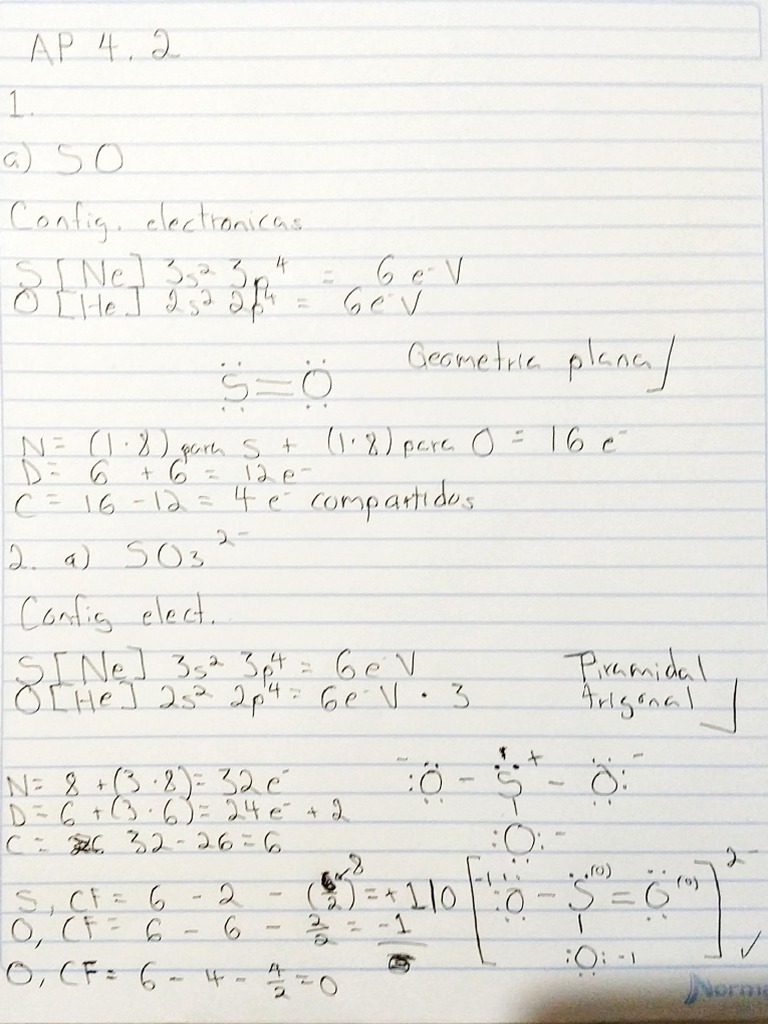 AP 4.2
1.
a) SO
Config. electronicas
S [Ne] 3s² 3p⁴ = 6 e⁻ V
O [He] 2s² 2p⁴ = 6 e⁻ V
S=O Geometria plana
N = (1·8) para S + (1·8) para O = 16 e⁻
D = 6 + 6 = 12 e⁻
C = 16 - 12 = 4 e⁻ compartidos
2. a) SO₃²⁻
Config elect.
S [Ne] 3s² 3p⁴ = 6 e⁻ V
O [He] 2s² 2p⁴ = 6 e⁻ V · 3
Piramidal
trigonal
N = 8 + (3·8) = 32 e⁻
D = 6 + (3·6) = 24 e⁻ + 2
C = 32 - 26 = 6
⁻:O - S⁺ - O:⁻
:O:⁻
S, CF = 6 - 2 - (6/2) ↙8 = +1 | 0
O, CF = 6 - 6 - 2/2 = -1
O, CF = 6 - 4 - 4/2 = 0
[-1 :O - S (0) = O (0)]²⁻ ✓
:O: -1
Norma